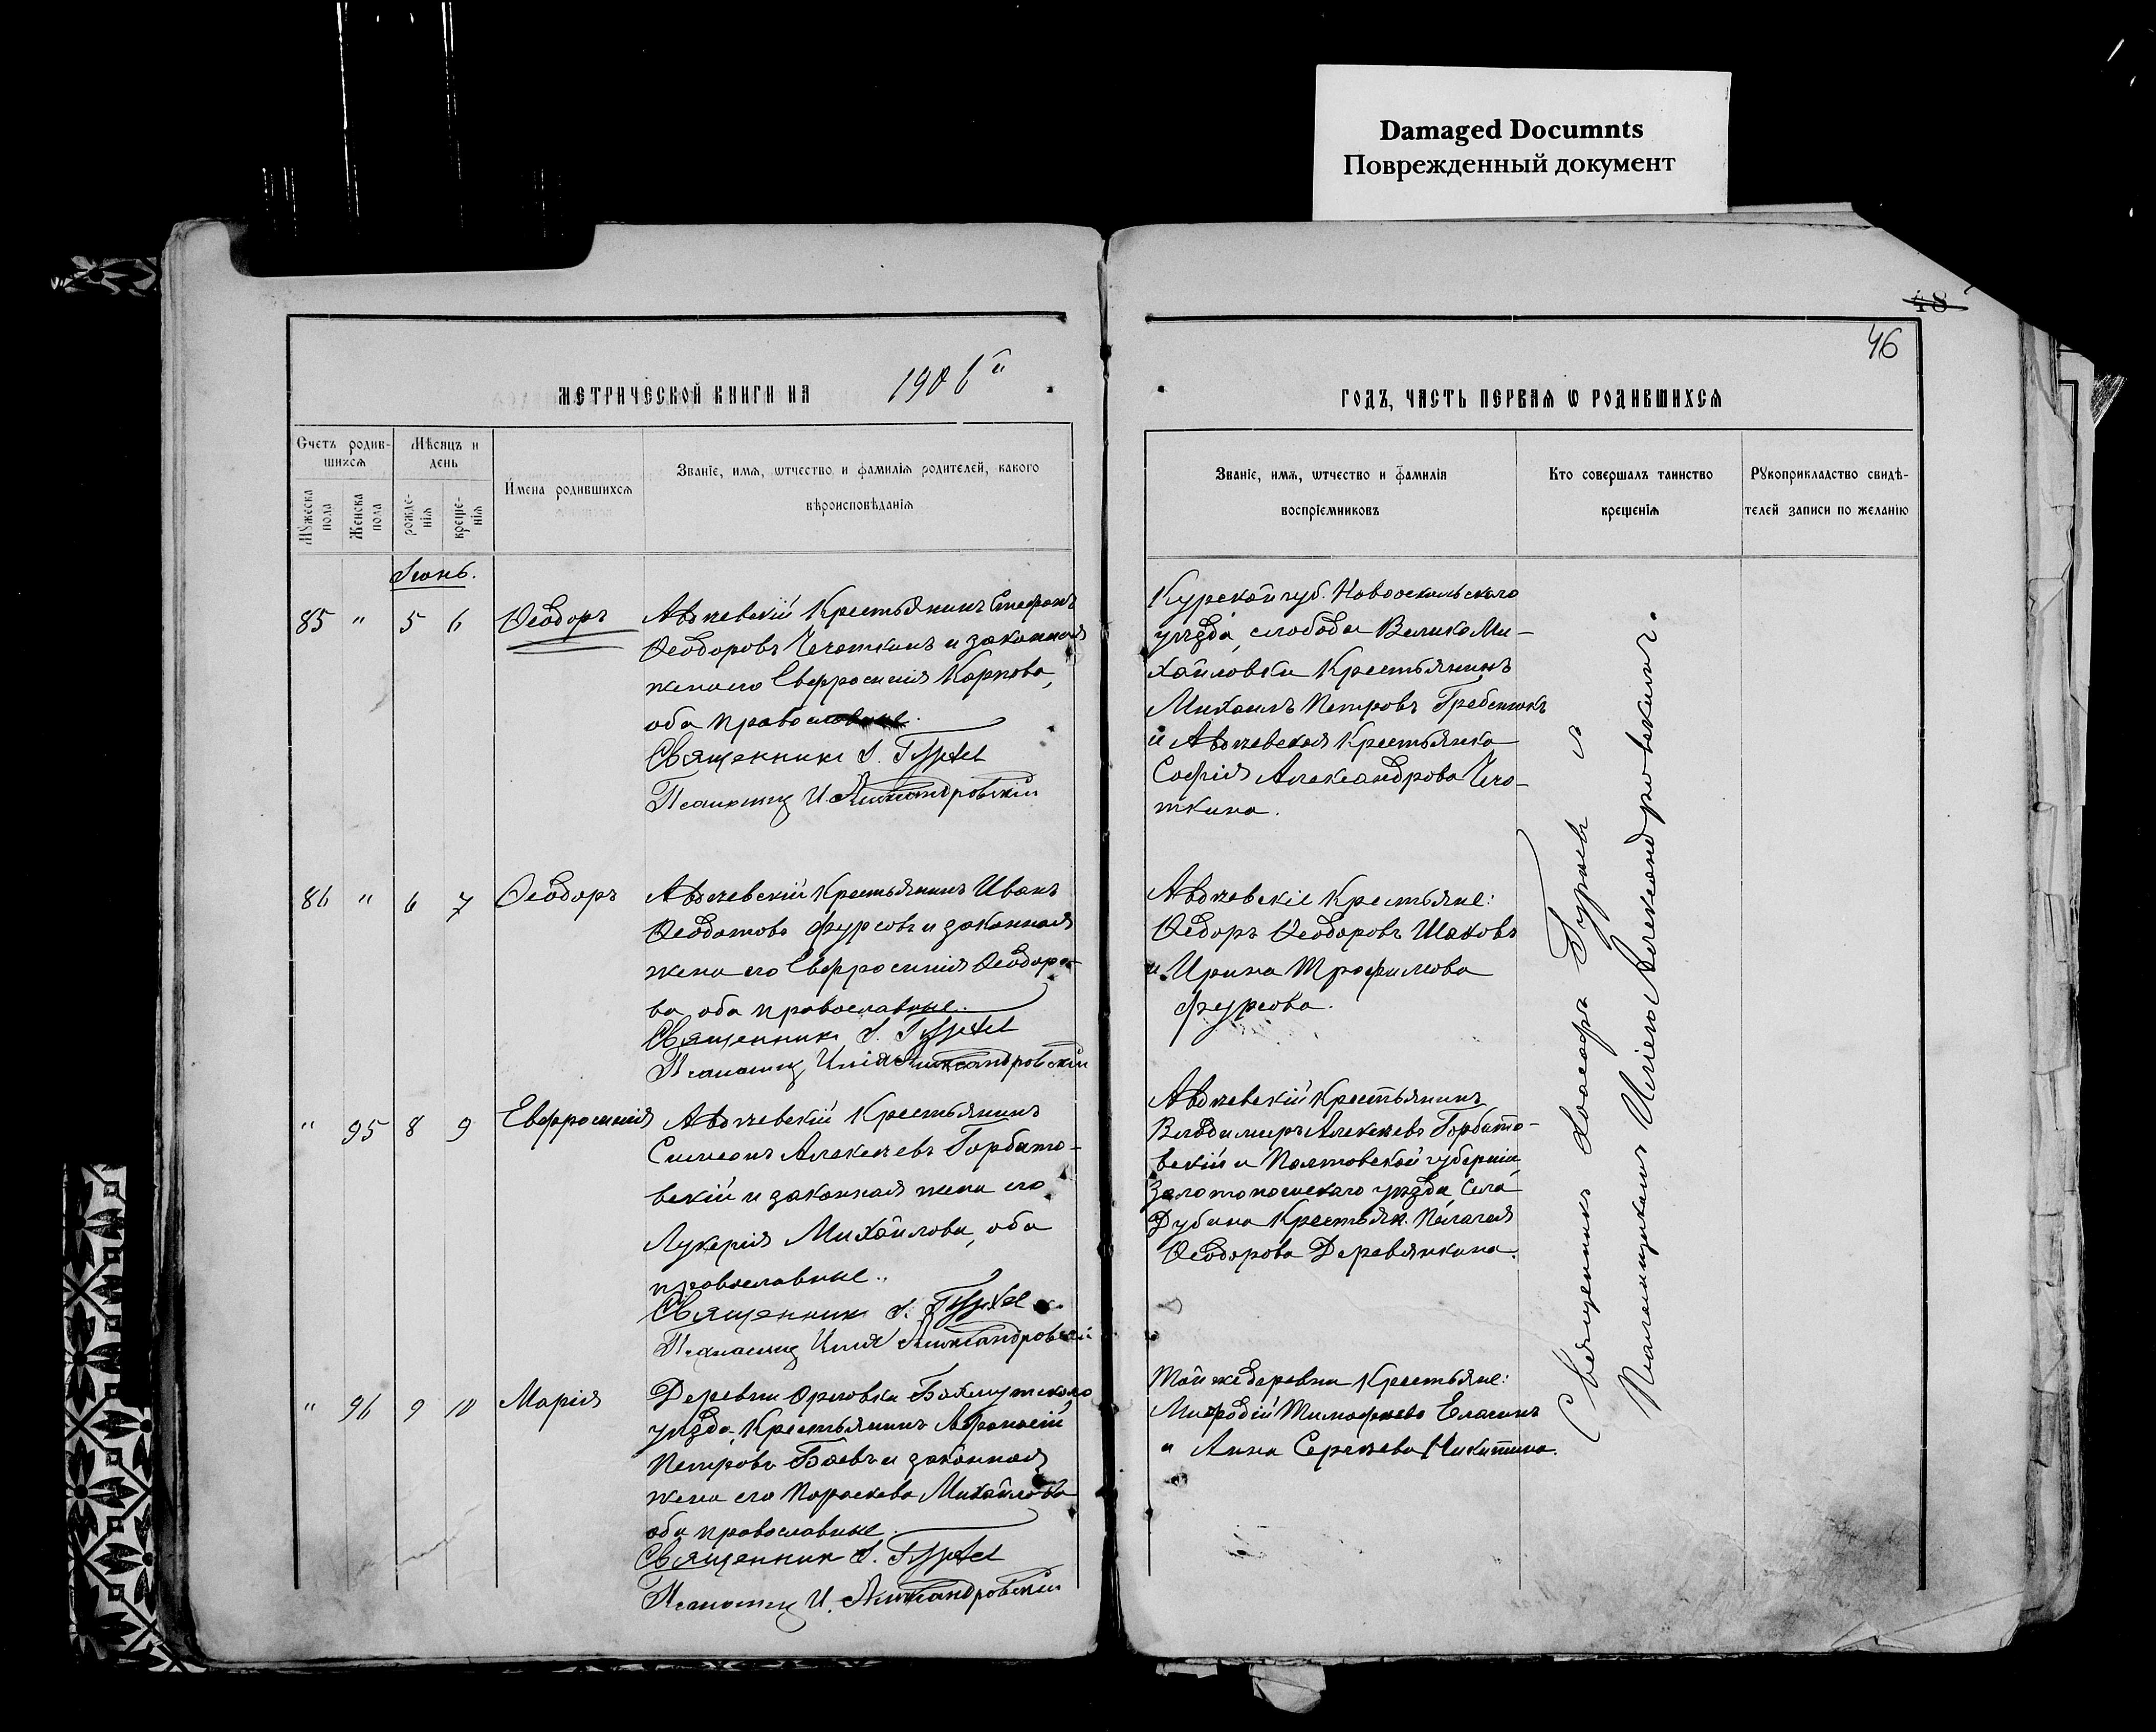 Damaged Documnts
Поврежденный документ
48
46
МЕТРИЧЕСКОЙ КНИГИ НА 1906й
ГОДЪ, ЧАСТЬ ПЕРВАЯ Ѡ РОДИВШИХСЯ
Счетъ родив-
шихся
Мѣсяцъ и
день
Мужеска
пола
Женска
пола
рожде-
нія
креще-
нія
Имена родившихся
Званіе, имя, ѡтчество и фамилія родителей, какого
вѣроисповѣданія
Званіе, имя, ѡтчество и фамилія
воспріемниковъ
Кто совершалъ таинство
крещенія
Рукоприкладство свидѣ-
телей записи по желанію
Іюнь.
85 " 5 6 Ѳеодоръ
Авдѣевскій Крестьянинъ Стефанъ
Ѳеодоровъ Чечоткинъ и законная
жена его Евфросинія Карпова,
оба православные.
Священникъ І. Гурьевъ
Псаломщ И Александровскій
Курской губ. Новооскольскаго
уѣзда, слободы Велико Ми-
хайловки Крестьянинъ
Михаилъ Петровъ Гребенюкъ
и Авдѣевская Крестьянка
Софія Александрова Чечо-
ткина.
86 " 6 7 Ѳеодоръ
Авдѣевскій Крестьянинъ Иванъ
Ѳеодотовъ Фурсовъ и законная
жена его Евфросинія Ѳеодоро-
ва, оба православные.
Священникъ І. Гурьевъ
Псаломщ Илія Александровскій
Авдѣевскіе Крестьяне:
Ѳедоръ Ѳеодоровъ Шаховъ
и Ирина Трофимова
Фурсова.
" 95 8 9 Евфросинія
Авдѣевскій Крестьянинъ
Симеонъ Алексѣевъ Горбато-
вскій и законная жена его
Лукерія Михайлова, оба
православные.
Священникъ І. Гурьевъ
Псаломщ Илія Александровскій
Авдѣевскій Крестьянинъ
Владимиръ Алексѣевъ Горбато-
вскій и Полтовской губерніи
Золотоношскаго уѣзда, села
Дубина Крестьян. Пелагея
Ѳеодорова Деревянкина.
" 96 9 10 Марія
Деревни Орловки Бахмутскаго
уѣзда, Крестьянинъ Афанасій
Петровъ Баевъ и законная
жена его Параскева Михайлова
оба православные.
Священникъ І. Гурьевъ
Псаломщ И. Александровскій
Той же деревни Крестьяне:
Тимофеевъ Елагинъ
и Анна Сергѣева Никитина.
Священникъ Іоасафъ Гурьевъ съ
Псаломщикомъ Иліею Александровскимъ.